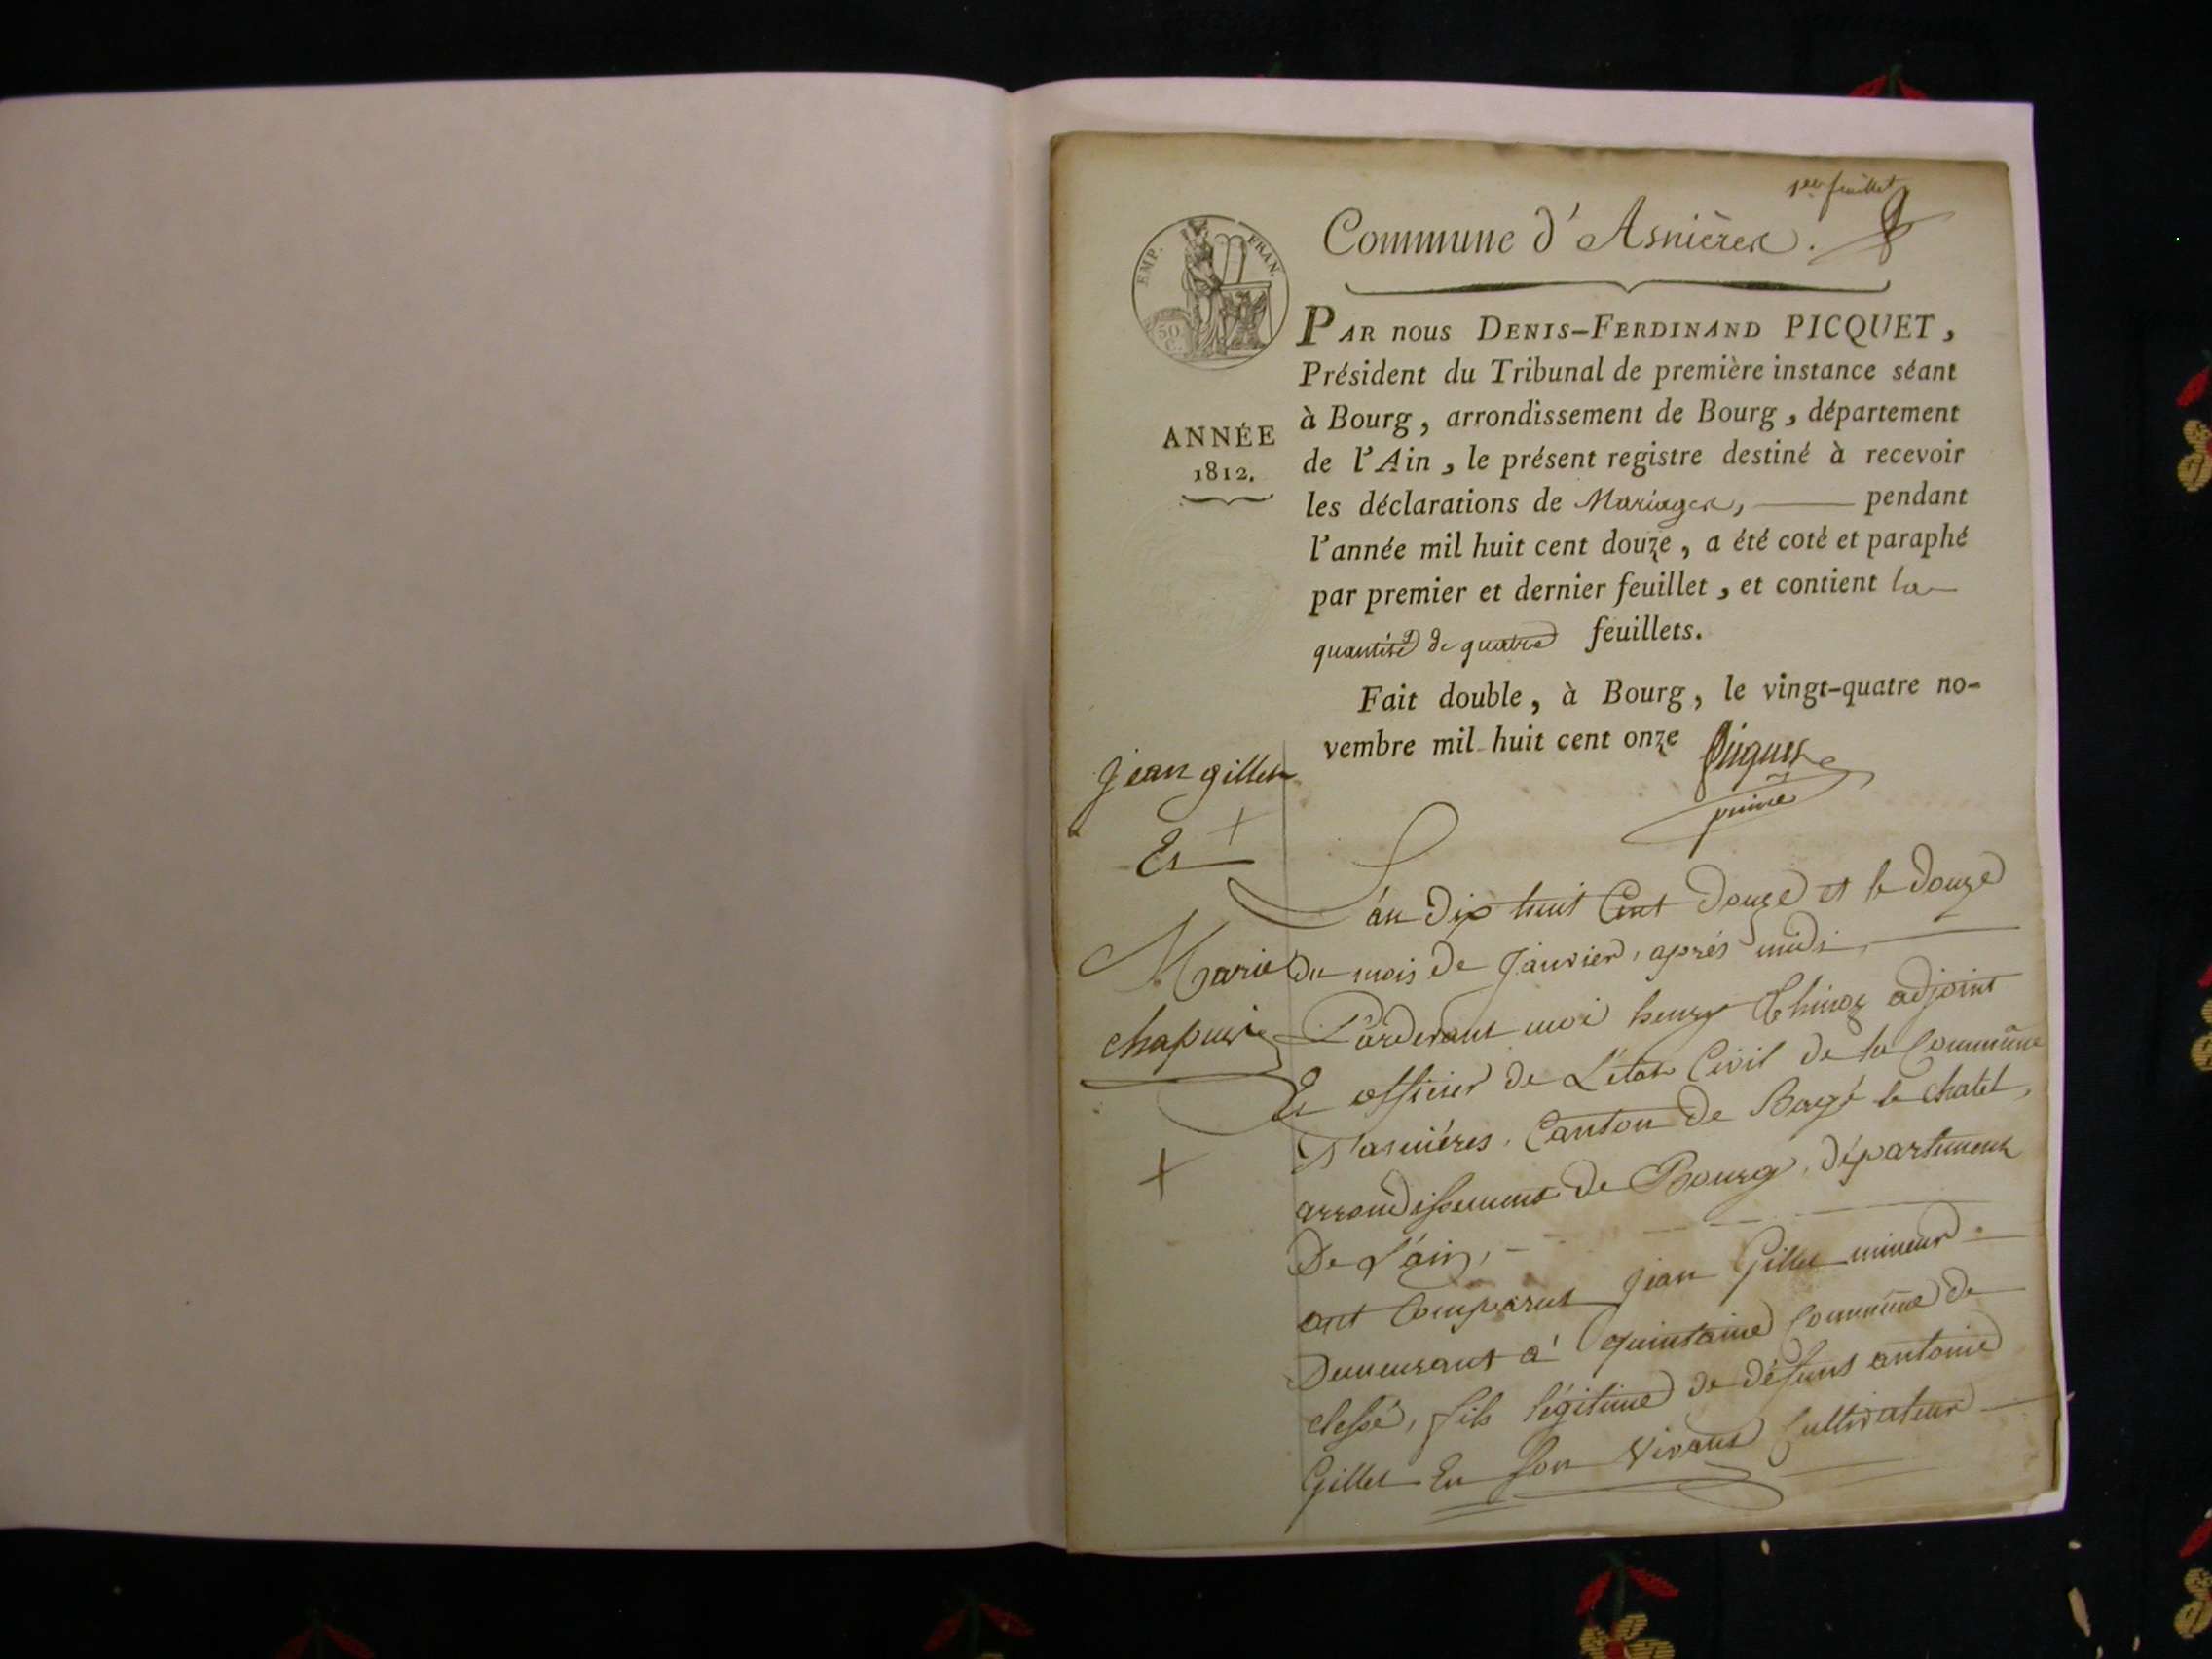 1er feuillet
Commune d'Asnières.
EMP. FRAN.
50 C.
PAR nous DENIS-FERDINAND PICQUET,
Président du Tribunal de première instance séant
à Bourg, arrondissement de Bourg, département
de l'Ain, le présent registre destiné à recevoir
les déclarations de Mariages, pendant
l'année mil huit cent douze, a été coté et paraphé
par premier et dernier feuillet, et contient la
quantité de quatre feuillets.
Fait double, à Bourg, le vingt-quatre no-
vembre mil huit cent onze Picquet
ANNÉE
1812.
jean gillet
Et
Marie
chapuis
L'an Dix huit Cent Douze et le Douze
Du mois De Janvier, aprés midi
Pardevant moi henry Thinoz adjoint
Et officier de L'état Civil de la Commune
D'asniéres, Canton de Bagé le chatel,
arrondissement De Bourg, département
De L'ain,
ont Comparut Jean Gillet mineur
Demeurant à quintaine Commune de
clessé, fils légitime de défunt antoine
Gillet En Son Vivant Cultivateur